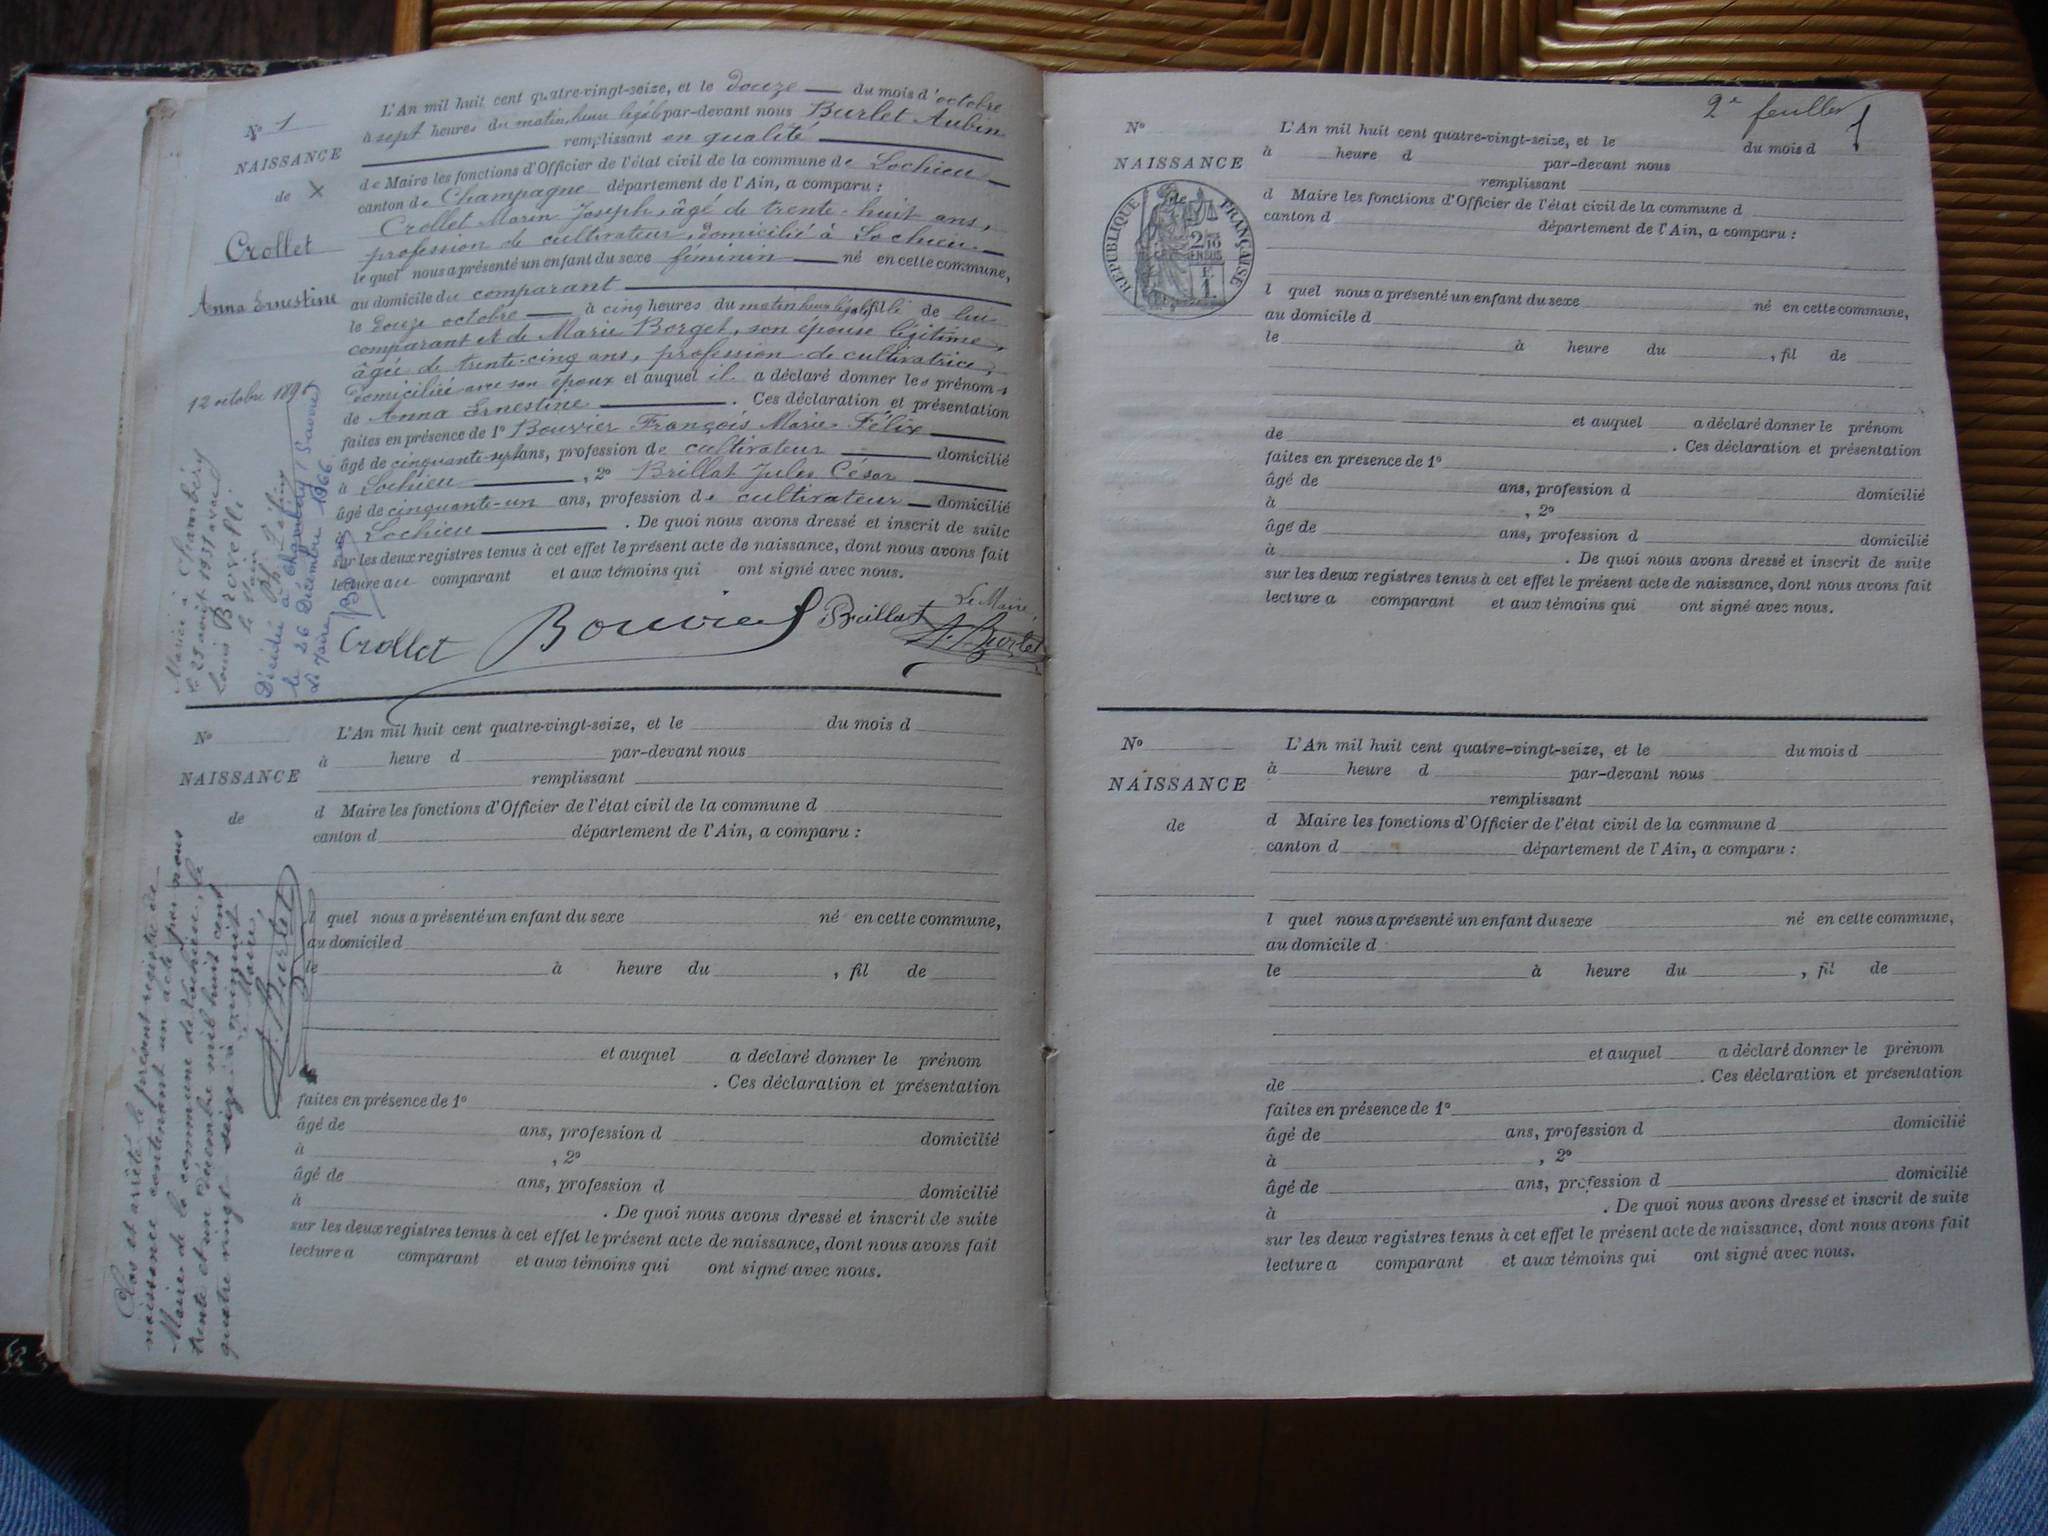 N° 1
NAISSANCE
de X
Crollet
Anna Ernestine
12 octobre 1896
L'An mil huit cent quatre-vingt-seize, et le douze du mois d'octobre
à sept heures du matin, heure légale par-devant nous Burlet Aubin
remplissant en qualité
de Maire les fonctions d'Officier de l'état civil de la commune de Lochieu
canton de Champagne département de l'Ain, a comparu :
Crollet Marin Joseph, âgé de trente-huit ans,
profession de cultivateur, domicilié à Lochieu
lequel nous a présenté un enfant du sexe féminin né en cette commune,
au domicile du comparant
le douze octobre à cinq heures du matin heure légale, fille de lui
comparant et de Marie Borget, son épouse légitime,
âgée de trente-cinq ans, profession de cultivatrice,
domiciliée avec son époux et auquel il a déclaré donner les prénoms
de Anna Ernestine . Ces déclaration et présentation
faites en présence de 1° Bouvier François Marie Félix
âgé de cinquante-sept ans, profession de cultivateur domicilié
à Lochieu , 2° Brillat Jules César
âgé de cinquante-un ans, profession de cultivateur domicilié
à Lochieu . De quoi nous avons dressé et inscrit de suite
sur les deux registres tenus à cet effet le présent acte de naissance, dont nous avons fait
lecture au comparant et aux témoins qui ont signé avec nous.
Crollet Bouvier Brillat Le Maire
A. Burlet
Mariée à Chambéry
le 25 août 1931 avec
Louis Brovelli
le Maire
Décédée à Chambéry (Savoie)
le 26 Décembre 1966
Le Maire
N°
NAISSANCE
de
L'An mil huit cent quatre-vingt-seize, et le du mois d
à heure d par-devant nous
remplissant
d Maire les fonctions d'Officier de l'état civil de la commune d
canton d département de l'Ain, a comparu :
l quel nous a présenté un enfant du sexe né en cette commune,
au domicile d
le à heure du , fil de
et auquel a déclaré donner le prénom
. Ces déclaration et présentation
faites en présence de 1°
âgé de ans, profession d domicilié
à , 2°
âgé de ans, profession d domicilié
à . De quoi nous avons dressé et inscrit de suite
sur les deux registres tenus à cet effet le présent acte de naissance, dont nous avons fait
lecture a comparant et aux témoins qui ont signé avec nous.
Clos et arrêté le présent registre de
naissance contenant un acte par nous
Maire de la commune de Lochieu, le
trente et un décembre mil huit cent
quatre vingt seize à minuit
Le Maire,
A. Burlet
2e feuillet
N°
NAISSANCE
de
RÉPUBLIQUE FRANÇAISE
2/10
EN SUS
1 F.
L'An mil huit cent quatre-vingt-seize, et le du mois d
à heure d par-devant nous
remplissant
d Maire les fonctions d'Officier de l'état civil de la commune d
canton d département de l'Ain, a comparu :
l quel nous a présenté un enfant du sexe né en cette commune,
au domicile d
le à heure du , fil de
et auquel a déclaré donner le prénom
de . Ces déclaration et présentation
faites en présence de 1°
âgé de ans, profession d domicilié
à , 2°
âgé de ans, profession d domicilié
à . De quoi nous avons dressé et inscrit de suite
sur les deux registres tenus à cet effet le présent acte de naissance, dont nous avons fait
lecture a comparant et aux témoins qui ont signé avec nous.
N°
NAISSANCE
de
L'An mil huit cent quatre-vingt-seize, et le du mois d
à heure d par-devant nous
remplissant
d Maire les fonctions d'Officier de l'état civil de la commune d
canton d département de l'Ain, a comparu :
l quel nous a présenté un enfant du sexe né en cette commune,
au domicile d
le à heure du , fil de
et auquel a déclaré donner le prénom
de . Ces déclaration et présentation
faites en présence de 1°
âgé de ans, profession d domicilié
à , 2°
âgé de ans, profession d domicilié
à . De quoi nous avons dressé et inscrit de suite
sur les deux registres tenus à cet effet le présent acte de naissance, dont nous avons fait
lecture a comparant et aux témoins qui ont signé avec nous.